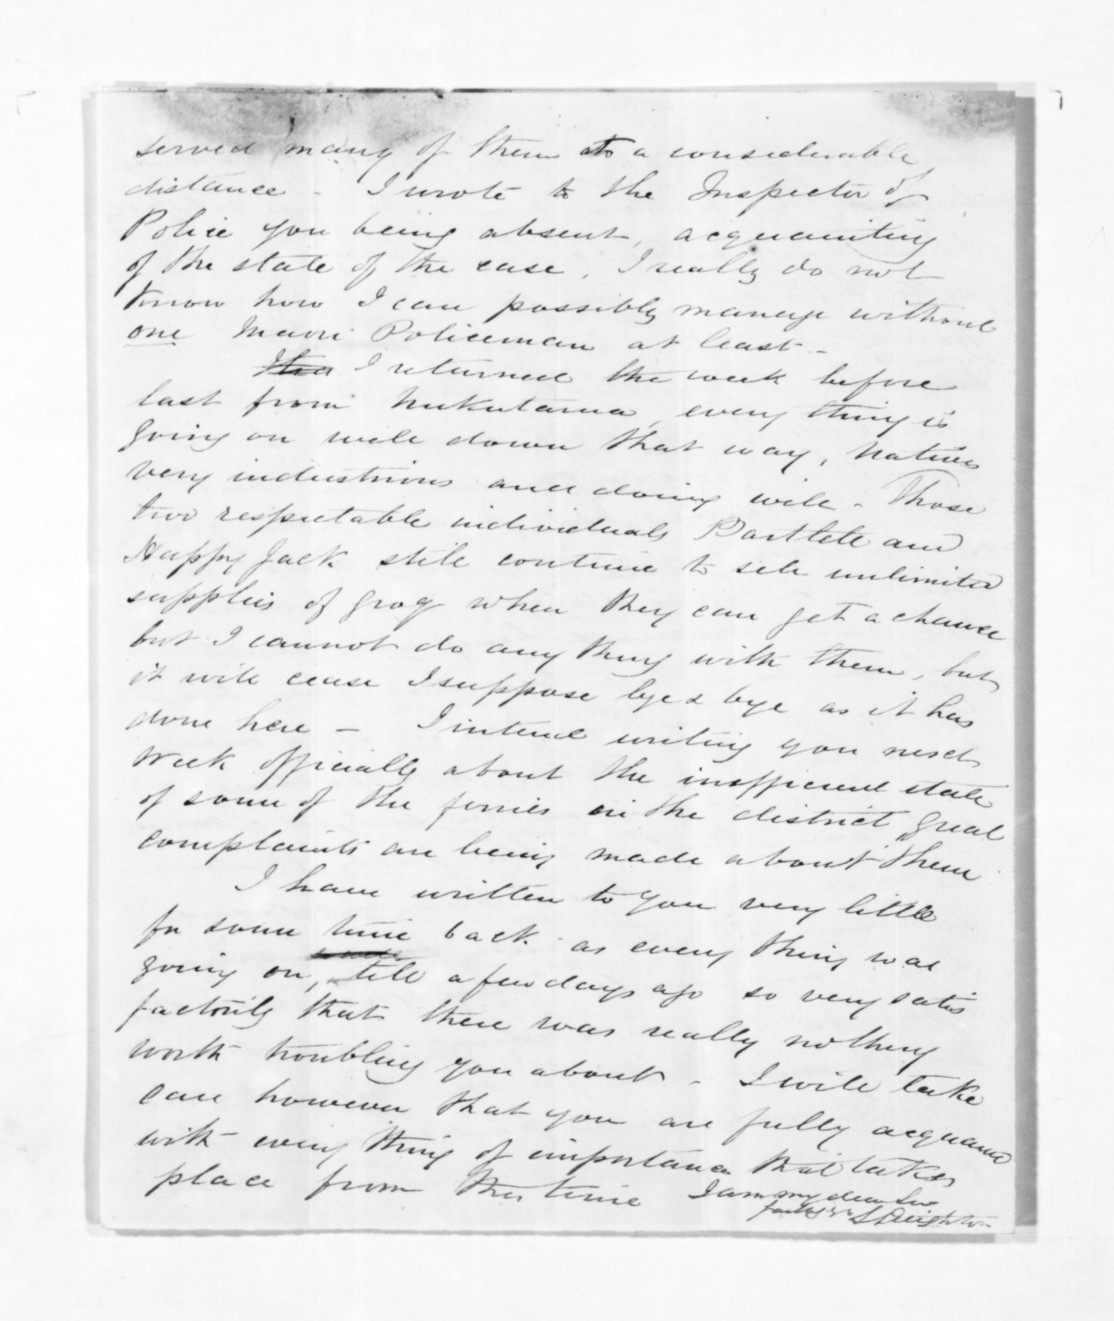 served many of them to a considerable
distance - I wrote to the Inspector of
Police you being absent, acquainting
of the state of the case, I really do not
know how I can possibly manage without
one Maori Policeman at least -
I returned the week before
last from Mukutarua, every thing is
going on well down that way, Natives
very industrious and doing well - Those
two respectable individuals Bartlett and
Happy Jack still continue to sell unlimited
supplies of grog when they can get a chance
but I cannot do any thing with them, but
it will cease I suppose bye & bye as it has
done here - I intend writing you next
week officially about the inefficient state
of some of the ferries in the district, great
complaints are being made about them
I have written to you very little
for some time back as every thing was
going on, till a few days ago so very satis
factorily that there was really nothing
worth troubling you about - I will take
care however that you are fully acquainted
with every thing of importance that takes
place from this time I am my dear Sir
faithfully yrs S Deighton